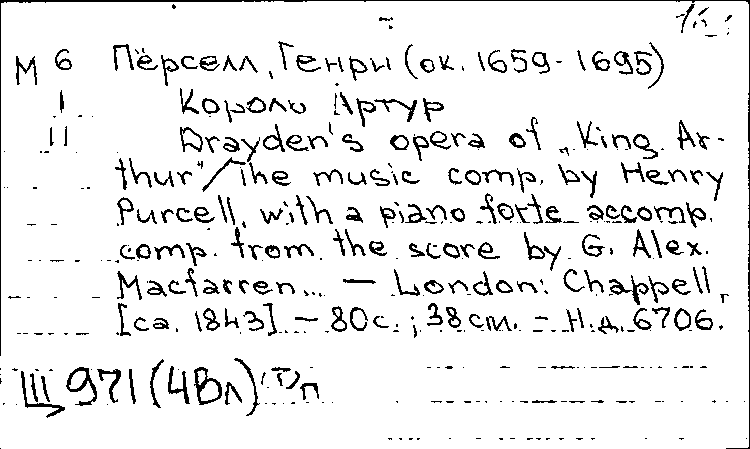 М 6 Пёрселл, Генри (ок. 1659-1695)
I Король Артур
II Drayden's opera of „King Ar-
thur"/The music comp. by Henry
Purcell, with a piano forte accomp.
comp. from the score by G. Alex.
Macfarren... — London: Chappell,
[ca. 1843] - 80 с.; 38 cm. - Н.д. 6706.
Щ 971 (4Вл)